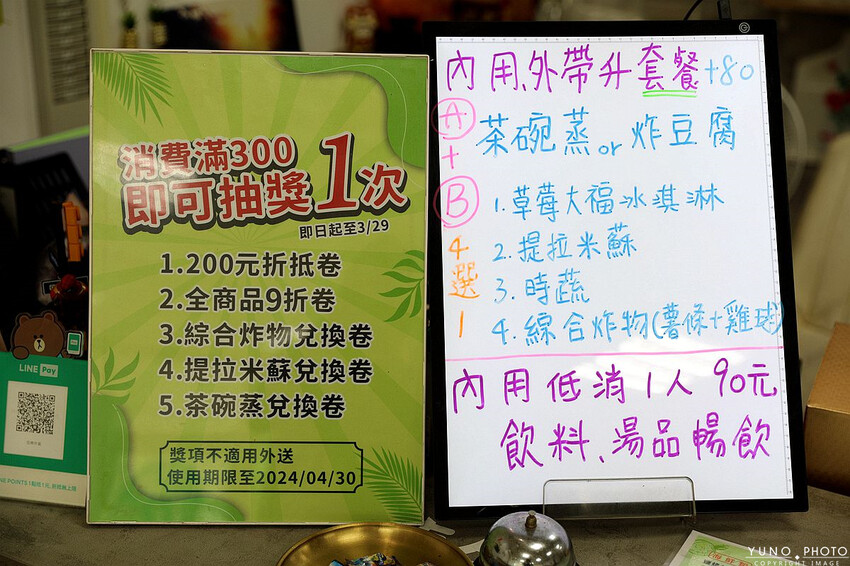 消費滿300
即可抽獎1次
即日起至3/29
1.200元折抵卷
2.全商品9折卷
3.綜合炸物兌換卷
4.提拉米蘇兌換卷
5.茶碗蒸兌換卷
獎項不適用外送
使用期限至2024/04/30
LINE Pay
內用、外帶升套餐+80
A 茶碗蒸 or 炸豆腐
+
B 1.草莓大福冰淇淋
4選1
2.提拉米蘇
3.時蔬
4.綜合炸物(薯條+雞球)
內用低消1人90元
飲料、湯品暢飲
YUNO PHOTO
COPYRIGHT IMAGE